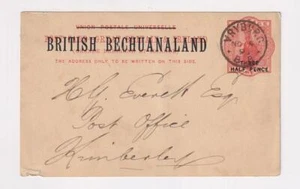 UNION POSTALE UNIVERSELLE
BRITISH BECHUANALAND
THE ADDRESS ONLY TO BE WRITTEN ON THIS SIDE.
VRYBURG
HALF PENCE
H. G. Everett Esq
Post Office
Kimberley